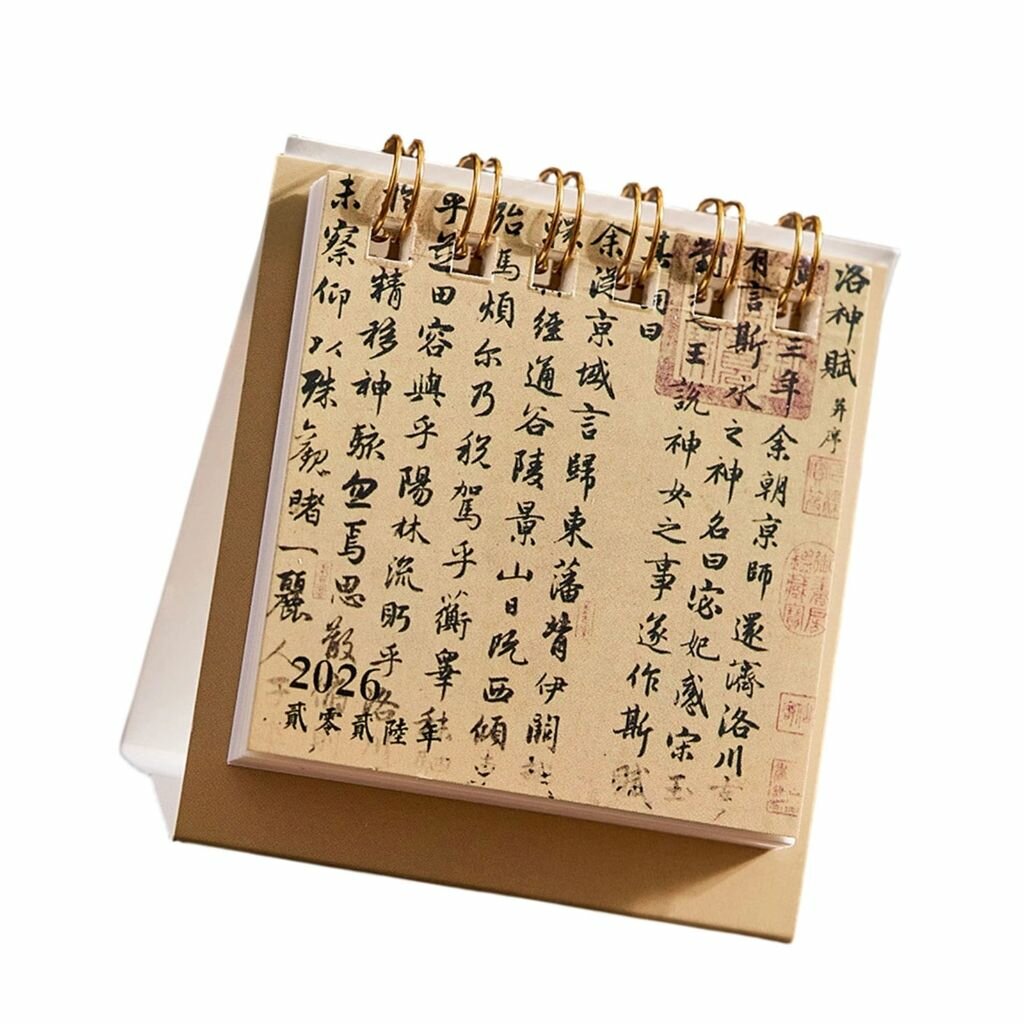 洛神賦 并序
三年余朝京師還濟洛川古
有言斯水之神名曰宓妃感宋玉
對王說神女之事遂作斯賦
其詞曰
余從京域言歸東藩背伊闕
經通谷陵景山日既西傾車
殆馬煩尔乃稅駕乎蘅皋秣
乎芝田容與乎陽林流眄乎洛
精移神駭忽焉思散
未察仰以殊觀睹一麗人于
2026
貳零貳陸年